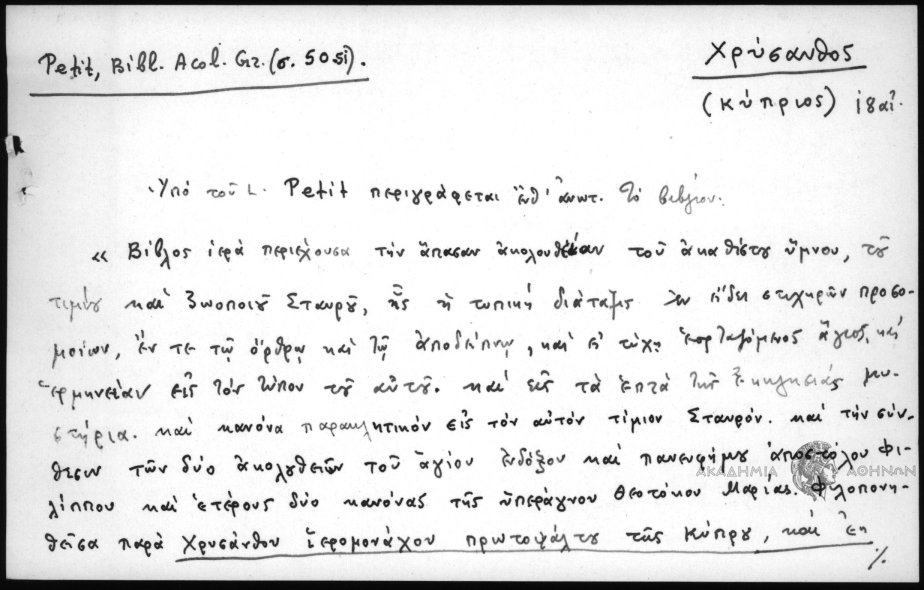 Petit, Bibl. Acol. Gr. (σ. 50 si).
Χρύσανθος
(Κύπριος) 18 αἰ.
Ὑπό τοῦ L. Petit περιγράφεται ἔνθ' ἀνωτ. τό βιβλίον:
« Βίβλος ἱερά περιέχουσα τήν ἅπασαν ἀκολουθίαν τοῦ ἀκαθίστου ὕμνου, τοῦ
τιμίου καί ζωοποιοῦ Σταυροῦ, ἧς ἡ τυπική διάταξις ἐν εἴδει στιχηρῶν προσο-
μοίων, ἔν τε τῷ ὄρθρῳ καί τῷ ἀποδείπνῳ, καί εἰ τύχῃ ἑορταζόμενος ἅγιος, καί
ἑρμηνείαν εἰς τόν τύπον τοῦ αὐτοῦ. καί εἰς τά ἑπτά τῆς Ἐκκλησίας μυ-
στήρια. καί κανόνα παρακλητικόν εἰς τόν αὐτόν τίμιον Σταυρόν. καί τήν σύν-
θεσιν τῶν δύο ἀκολουθειῶν τοῦ ἁγίου ἐνδόξου καί πανευφήμου ἀποστόλου Φι-
λίππου καί ἑτέρους δύο κανόνας τῆς ὑπεράγνου Θεοτόκου Μαρίας. Φιλοπονη-
θεῖσα παρά Χρυσάνθου ἱερομονάχου πρωτοψάλτου τῆς Κύπρου, καί ἐκ
./.
ΑΚΑΔΗΜΙΑ ΑΘΗΝΩΝ